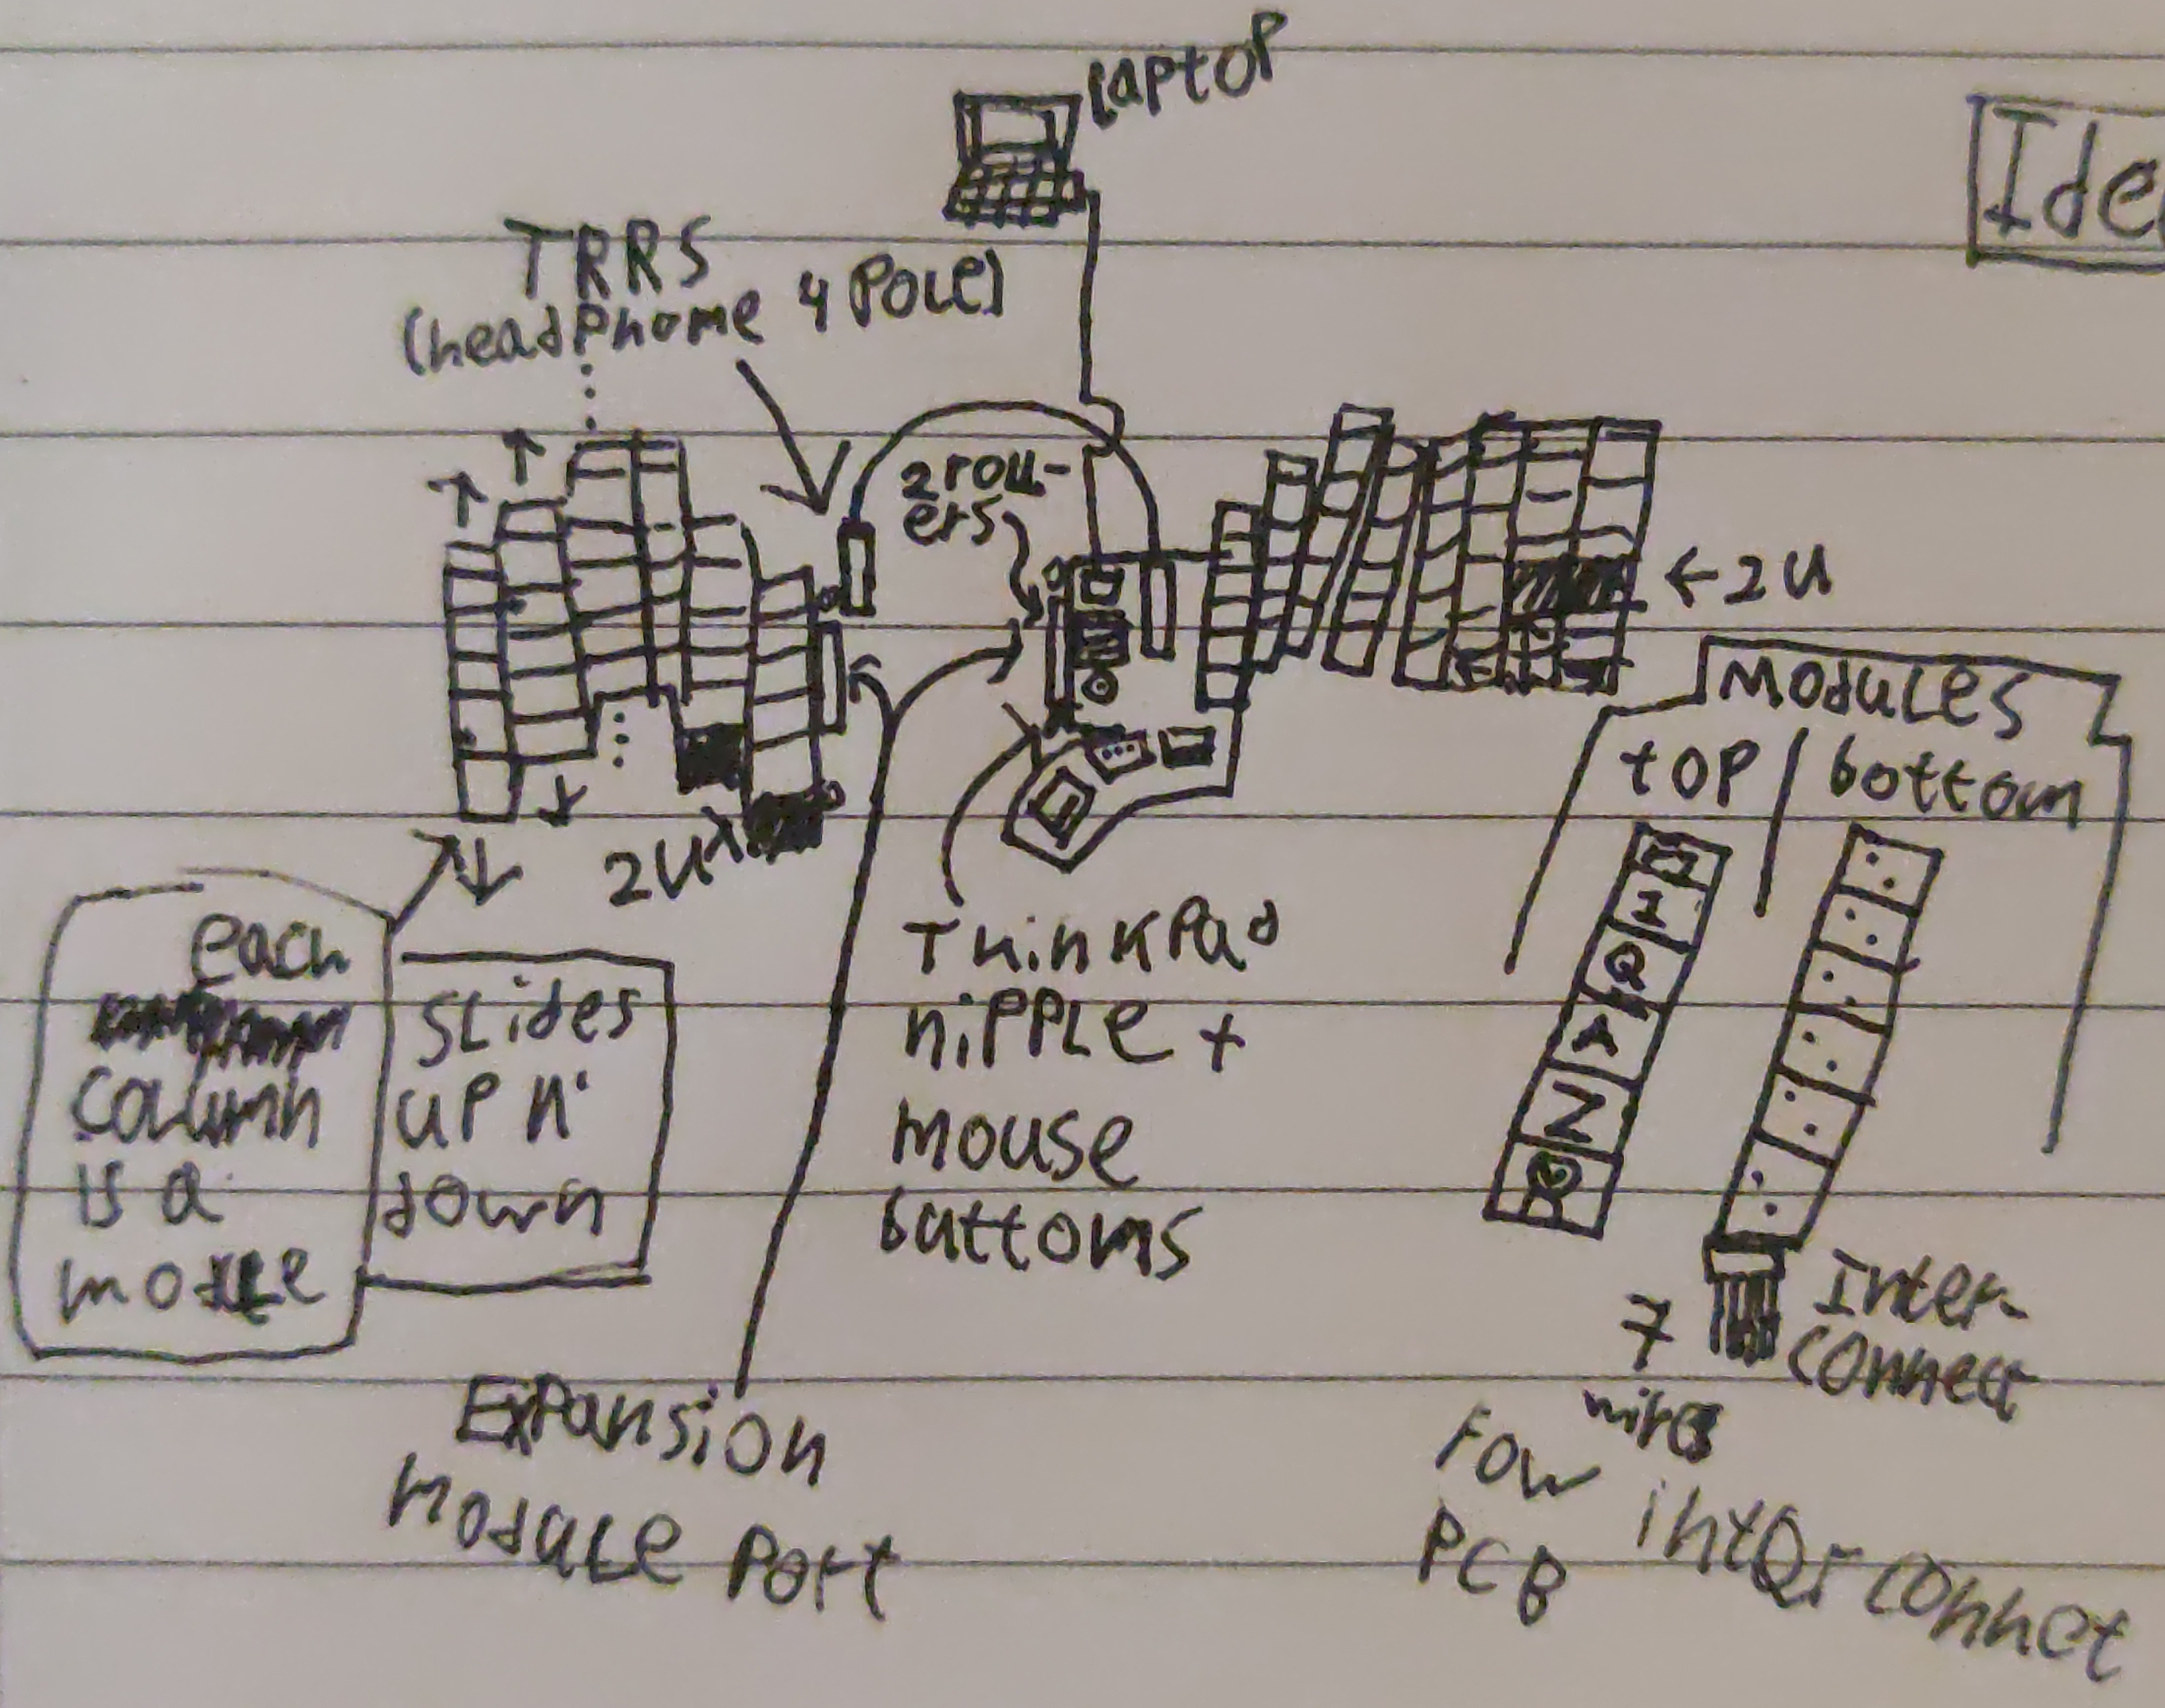 Laptop
Ide
TRRS
(headphome 4 Pole)
2 roll-
ers
← 2u
Modules
top / bottom
I
Q
A
Z
2u
each
column
is a
slides
up n'
down
ThinkPad
nipple +
mouse
buttoms
Expansion
Module Port
7
wires
Inter-
connect
PCB